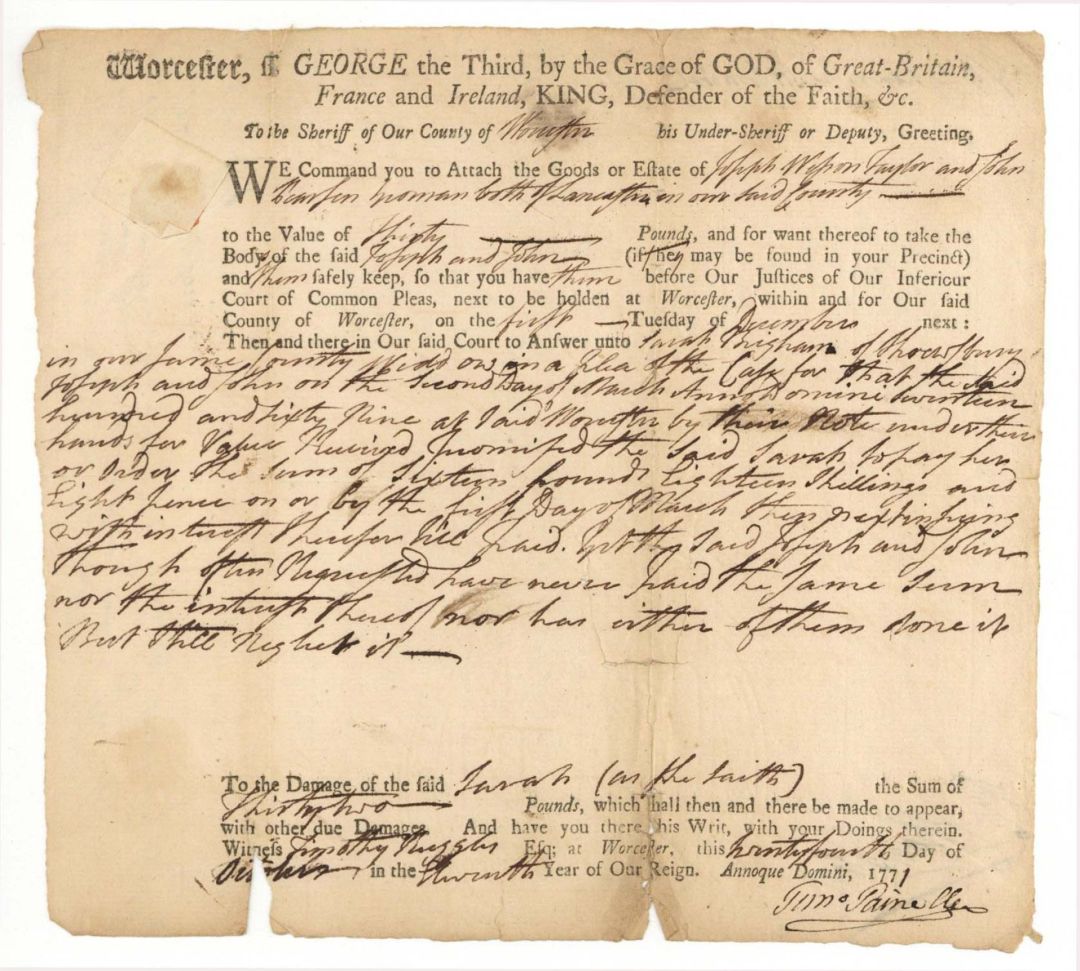 Worcester, ss. GEORGE the Third, by the Grace of GOD, of Great-Britain,
France and Ireland, KING, Defender of the Faith, &c.
To the Sheriff of Our County of Worcester his Under-Sheriff or Deputy, Greeting.
WE Command you to Attach the Goods or Estate of Joseph Wesson Taylor and John
Pearson yeoman both of Lancaster in our said County
to the Value of Thirty Pounds, and for want thereof to take the
Body of the said Joseph and John (if they may be found in your Precinct)
and them safely keep, so that you have them before Our Justices of Our Inferiour
Court of Common Pleas, next to be holden at Worcester, within and for Our said
County of Worcester, on the first Tuesday of December next:
Then and there in Our said Court to Answer unto Sarah Brigham of Shrewsbury
in our same County Widdow, in a Plea of the Case for that the said
Joseph and John on the Second Day of March Anno Domini Seventeen
hundred and sixty Nine at said Worcester by their Note under their
hands for Value Received promised the said Sarah to pay her
or Order the Sum of Sixteen pounds Eighteen Shillings and
Eight pence on or by the first Day of March then next
with interest therefor till paid. Yet the said Joseph and John
though often Requested have never paid the same sum
nor the interest thereof nor has either of them done it
But Still Neglect it
To the Damage of the said Sarah (as she saith) the Sum of
Thirty two Pounds, which shall then and there be made to appear,
with other due Damages. And have you there this Writ, with your Doings therein.
Witness Timothy Ruggles Esq; at Worcester, this twenty fourth Day of
October in the Eleventh Year of Our Reign. Annoque Domini, 1771
Timo Paine Cler